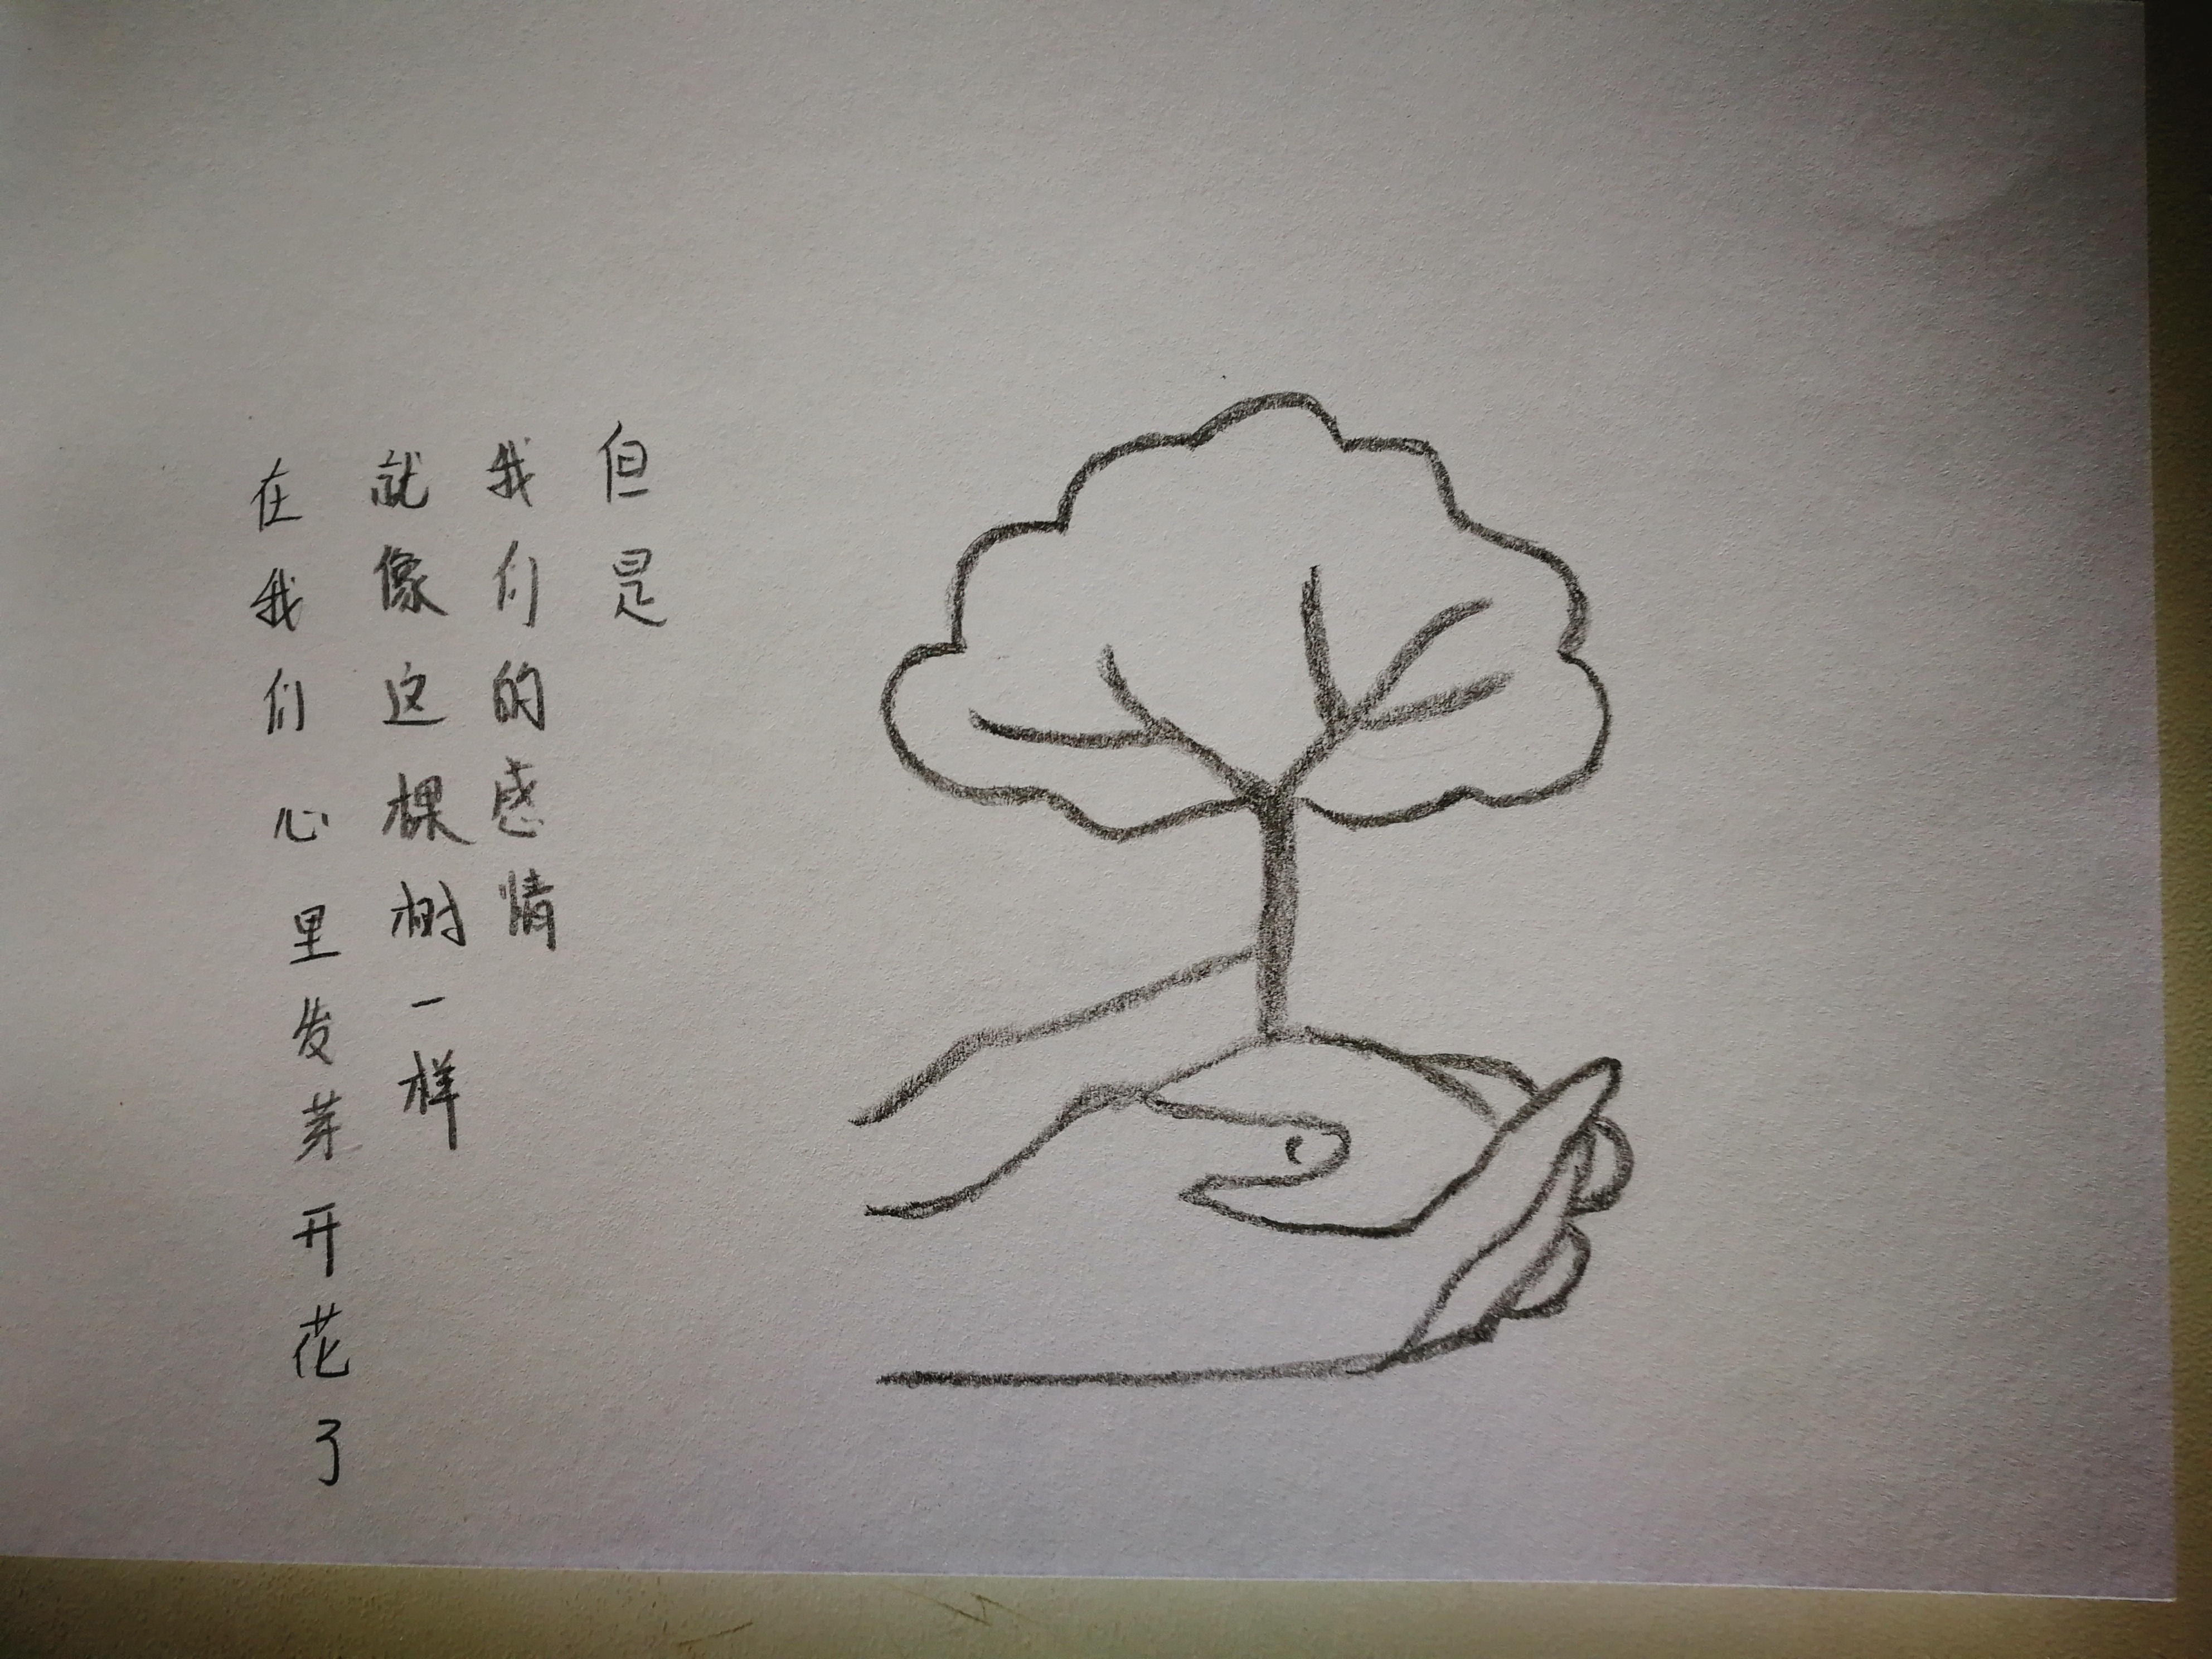 但是
我们的感情
就像这棵树一样
在我们心里发芽开花了